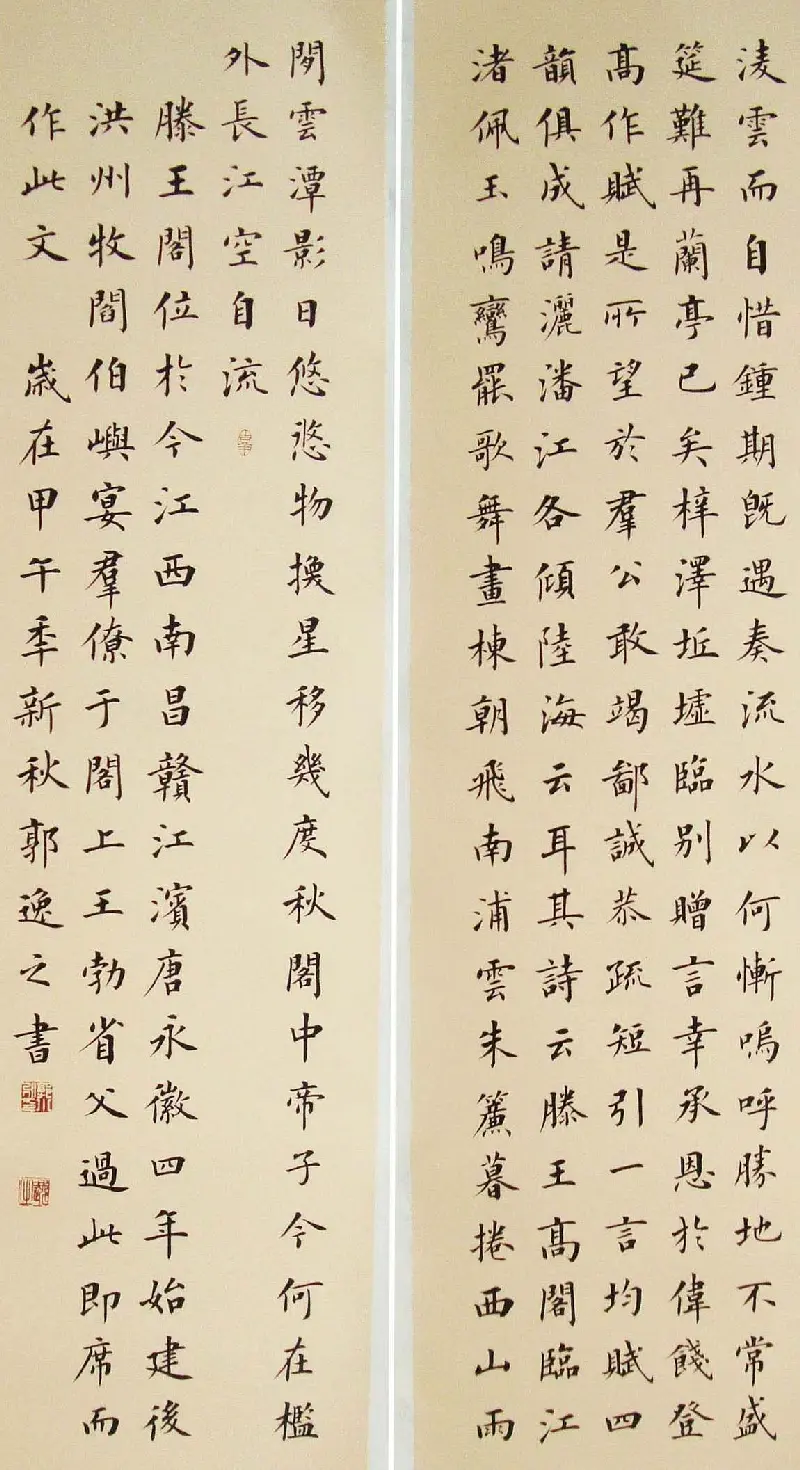 淩雲而自惜鍾期旣遇奏流水以何慚嗚呼勝地不常盛
筵難再蘭亭已矣梓澤坵墟臨别贈言幸承恩於偉餞登
髙作賦是所望於羣公敢竭鄙誠恭疏短引一言均賦四
韻俱成請灑潘江各傾陸海云耳其詩云滕王髙閣臨江
渚佩玉鳴鸞罷歌舞畫棟朝飛南浦雲朱簾暮捲西山雨
閒雲潭影日悠悠物換星移幾度秋閣中帝子今何在檻
外長江空自流
滕王閣位於今江西南昌贛江濱唐永徽四年始建後
洪州牧閻伯嶼宴羣僚于閣上王勃省父過此即席而
作此文 歲在甲午秊新秋郭逸之書